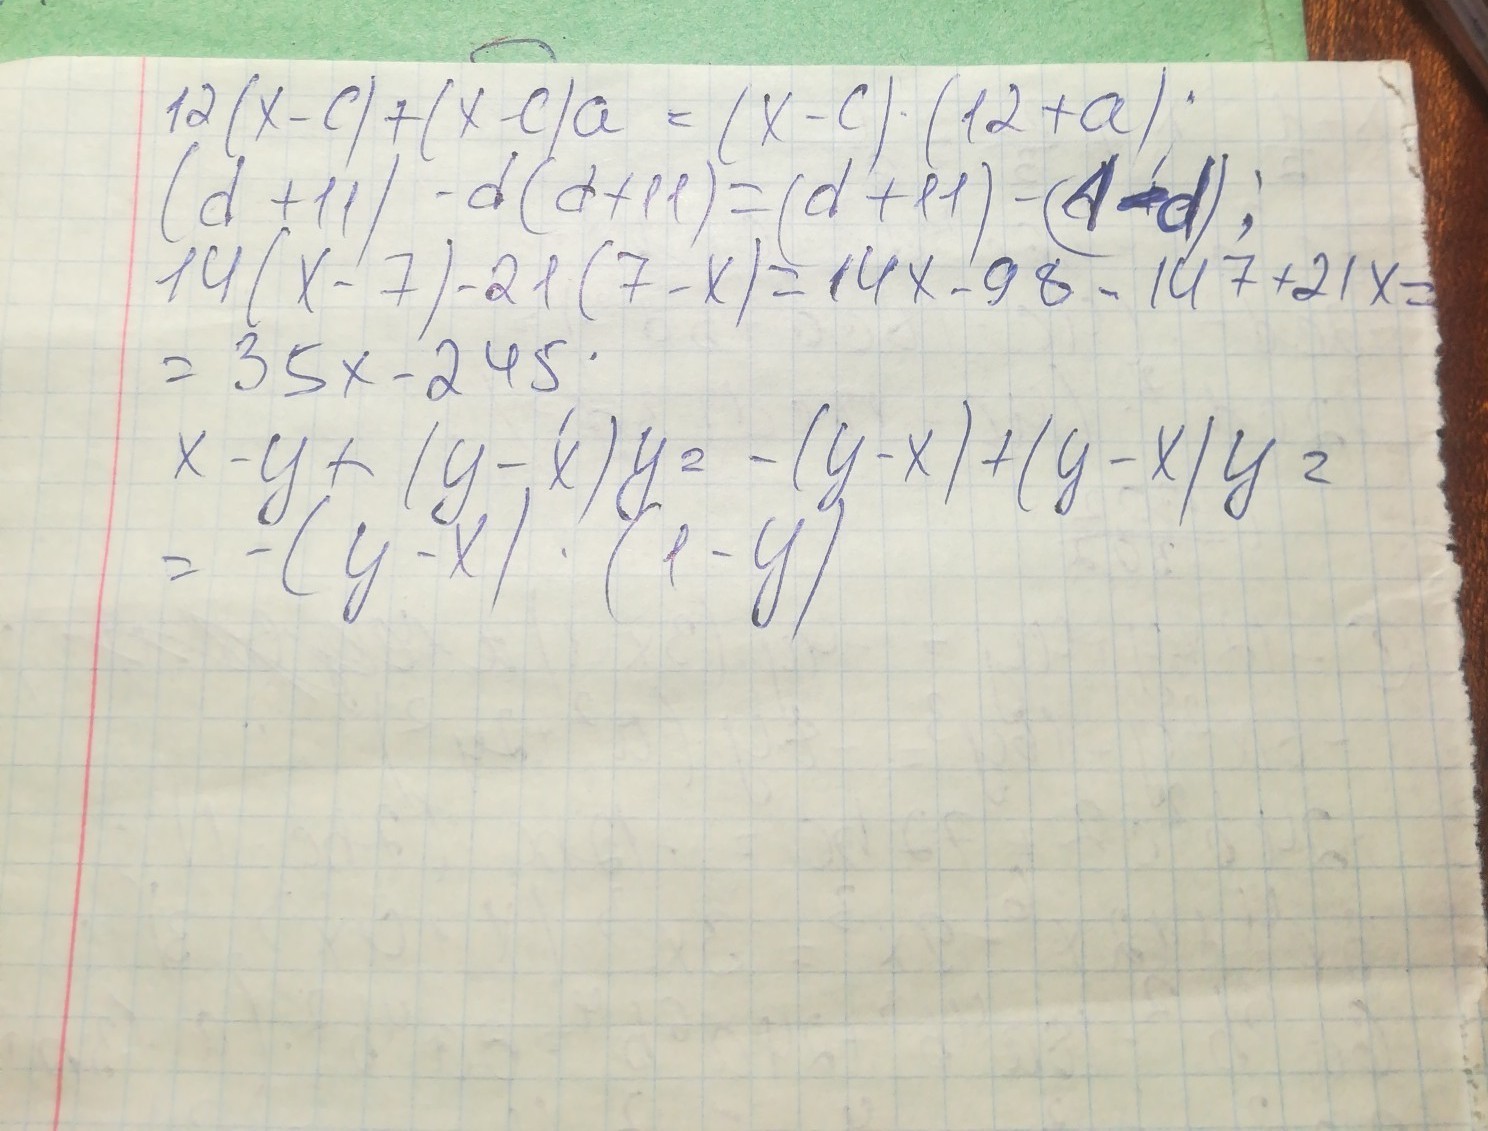 12(x-c)+(x-c)a = (x-c)·(12+a).
(d+11)-d(d+11)=(d+11)-(1-d);
14(x-7)-21(7-x)=14x-98-147+21x=
= 35x-245.
x-y+(y-x)y= -(y-x)+(y-x)y=
= -(y-x)·(1-y)